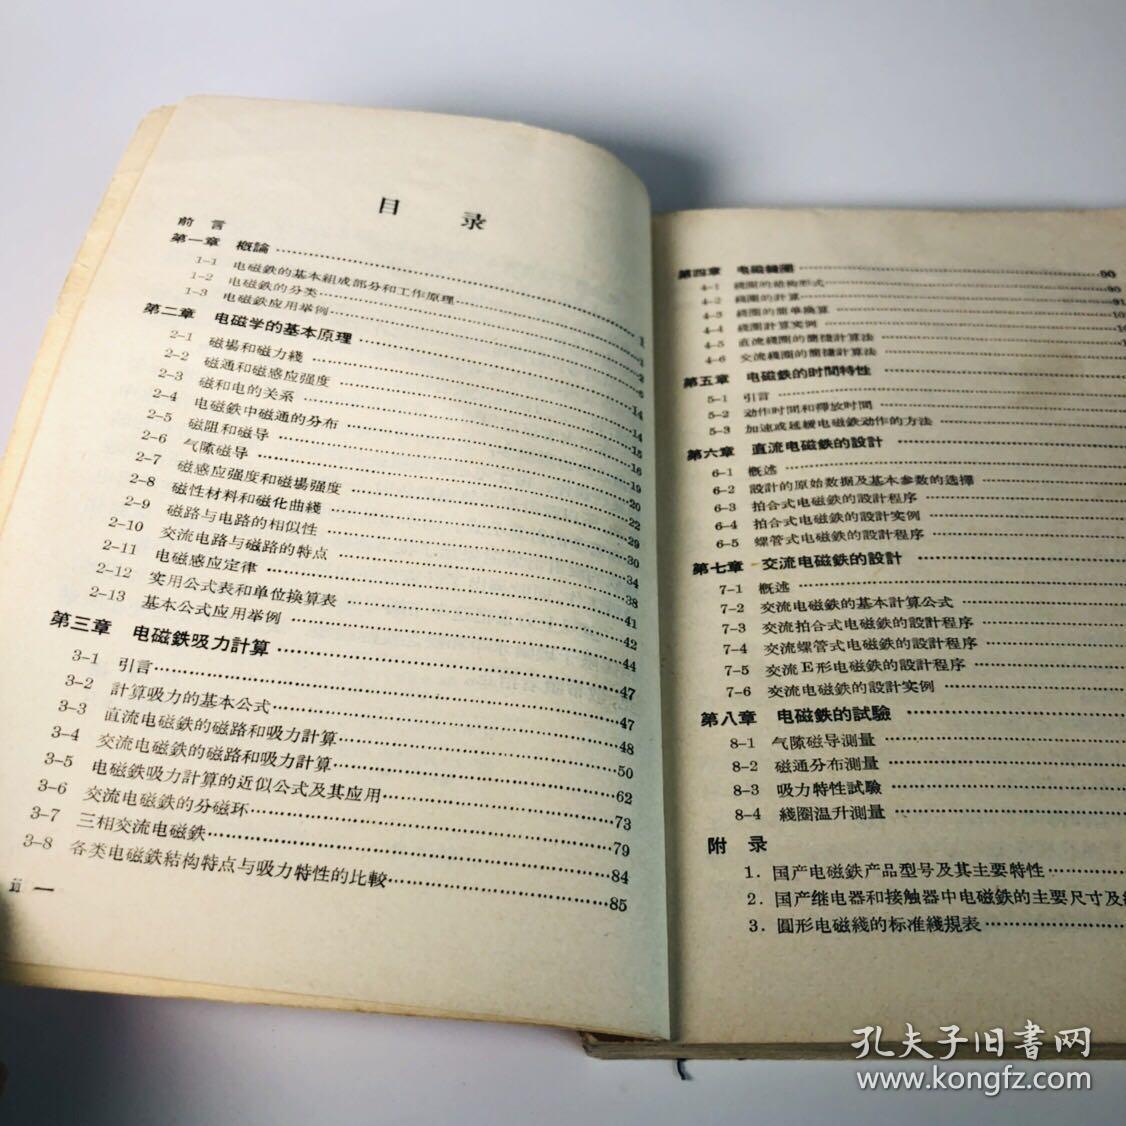 目 录
前言
第一章 概論 1
1-1 电磁鉄的基本組成部分和工作原理 1
1-2 电磁鉄的分类 2
1-3 电磁鉄应用举例 6
第二章 电磁学的基本原理 14
2-1 磁場和磁力綫 14
2-2 磁通和磁感应强度 15
2-3 磁和电的关系 16
2-4 电磁鉄中磁通的分布 19
2-5 磁阻和磁导 20
2-6 气隙磁导 22
2-7 磁感应强度和磁場强度 29
2-8 磁性材料和磁化曲綫 30
2-9 磁路与电路的相似性 34
2-10 交流电路与磁路的特点 38
2-11 电磁感应定律 41
2-12 实用公式表和单位換算表 42
2-13 基本公式应用举例 44
第三章 电磁鉄吸力計算 47
3-1 引言 47
3-2 計算吸力的基本公式 48
3-3 直流电磁鉄的磁路和吸力計算 50
3-4 交流电磁鉄的磁路和吸力計算 62
3-5 电磁鉄吸力計算的近似公式及其应用 73
3-6 交流电磁鉄的分磁环 79
3-7 三相交流电磁鉄 84
3-8 各类电磁鉄結构特点与吸力特性的比較 85
ii
第四章 电磁綫圈 90
4-1 綫圈的结构形式 90
4-2 綫圈的計算 91
4-3 綫圈的簡单換算 10
4-4 綫圈計算实例 10
4-5 直流綫圈的簡捷計算法 1
4-6 交流綫圈的簡捷計算法
第五章 电磁鉄的时間特性
5-1 引言
5-2 动作时間和釋放时間
5-3 加速或延緩电磁鉄动作的方法
第六章 直流电磁鉄的設計
6-1 概述
6-2 設計的原始数据及基本参数的选擇
6-3 拍合式电磁鉄的設計程序
6-4 拍合式电磁鉄的設計实例
6-5 螺管式电磁鉄的設計程序
第七章 交流电磁鉄的設計
7-1 概述
7-2 交流电磁鉄的基本計算公式
7-3 交流拍合式电磁鉄的設計程序
7-4 交流螺管式电磁鉄的設計程序
7-5 交流E形电磁鉄的設計程序
7-6 交流电磁鉄的設計实例
第八章 电磁鉄的試驗
8-1 气隙磁导測量
8-2 磁通分布測量
8-3 吸力特性試驗
8-4 綫圈温升測量
附 录
1. 国产电磁鉄产品型号及其主要特性
2. 国产继电器和接触器中电磁鉄的主要尺寸及
3. 圓形电磁綫的标准綫規表
孔夫子旧書网
www.kongfz.com